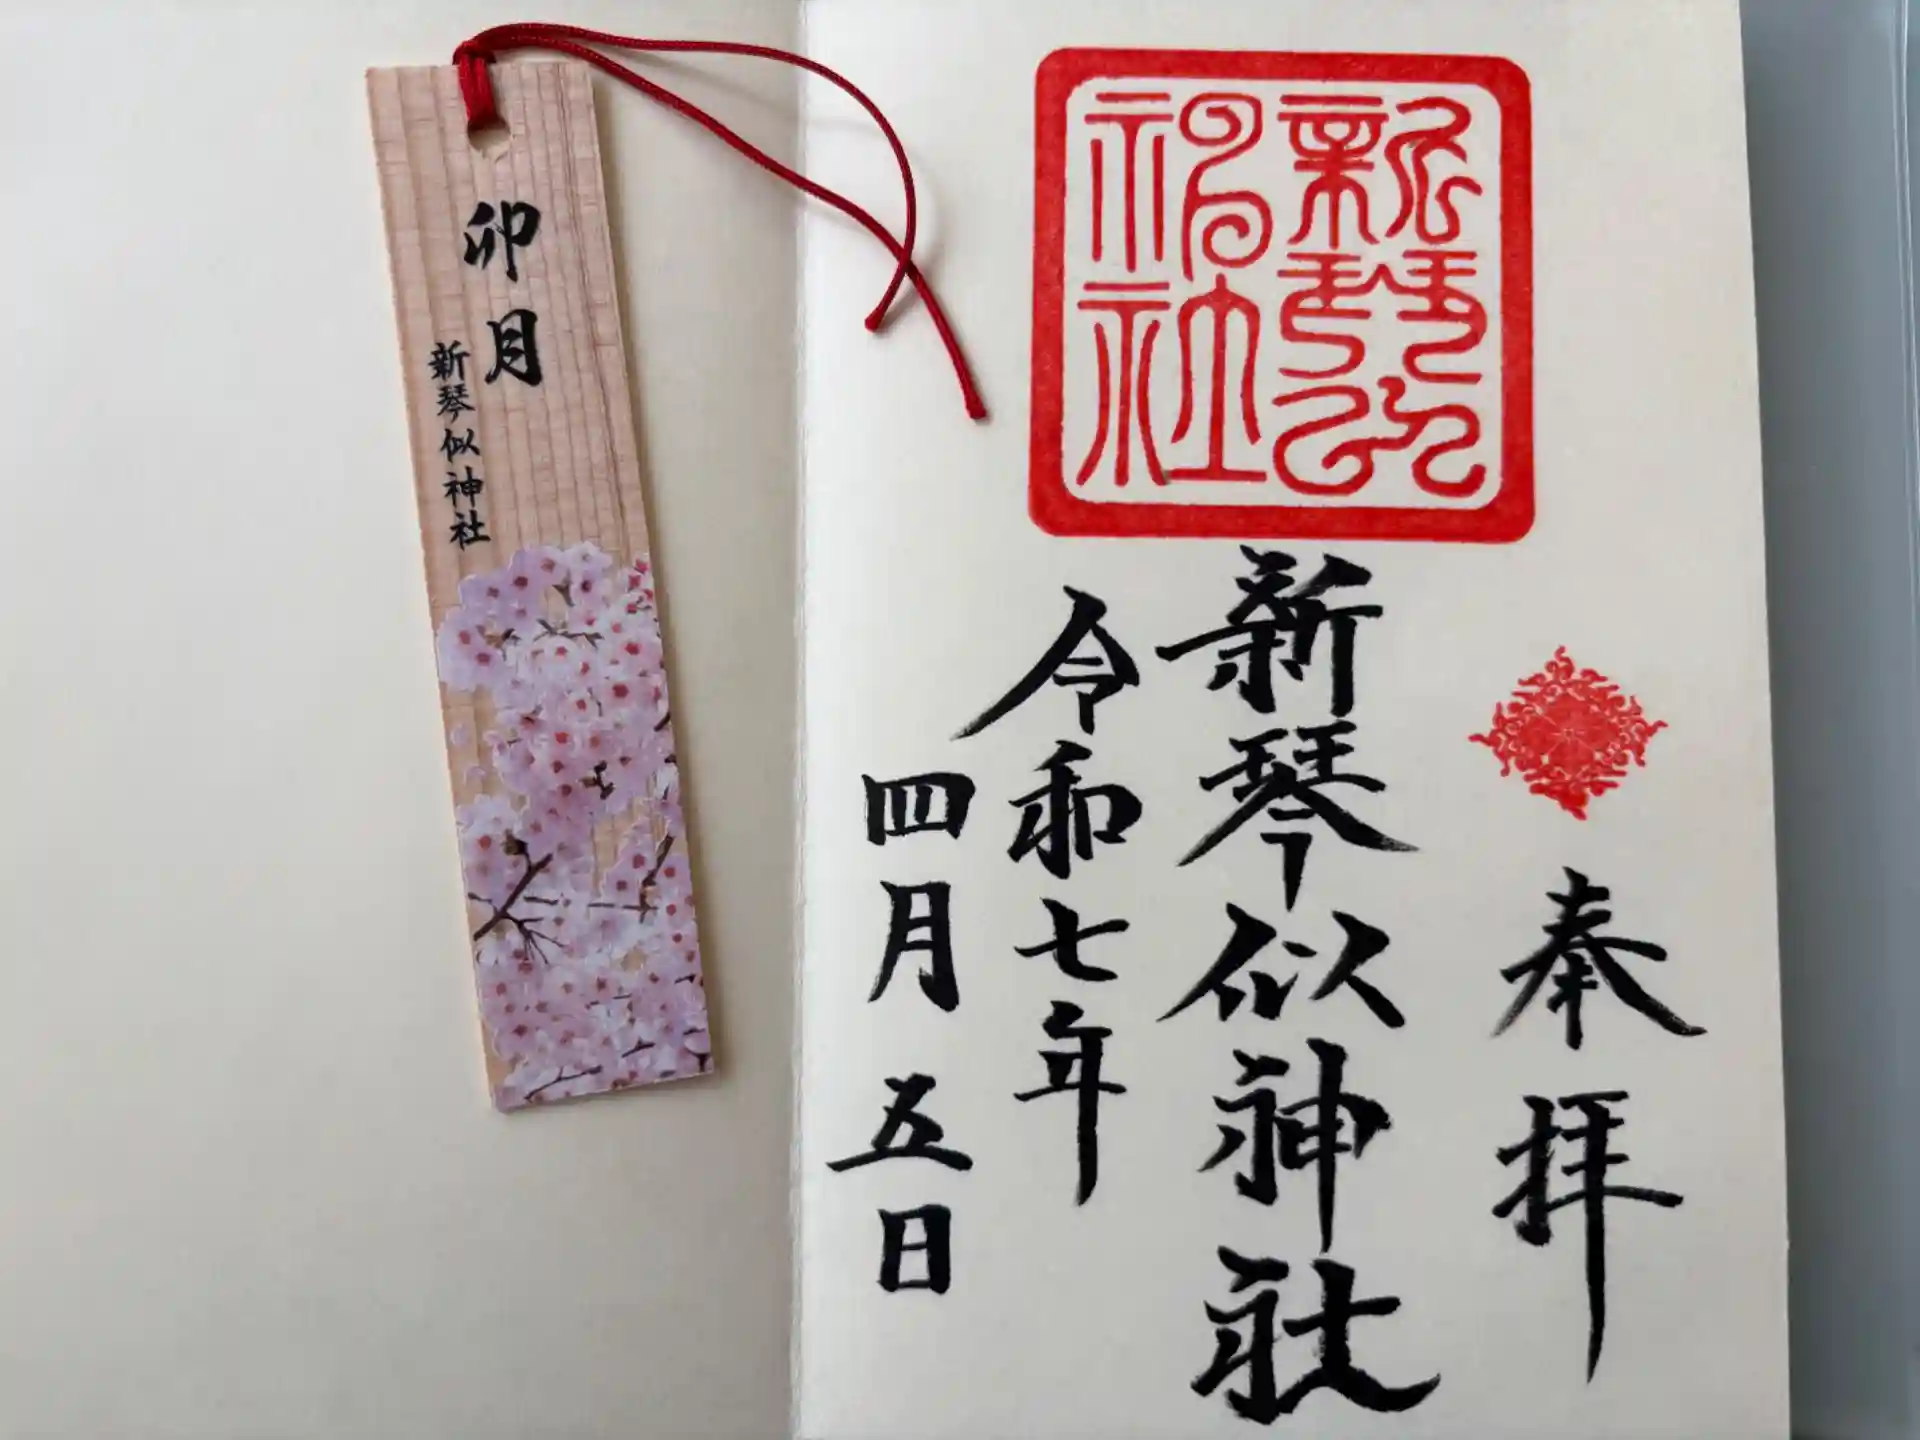 卯月
新琴似神社
新琴似
神社
奉拝
新琴似神社
令和七年
四月五日